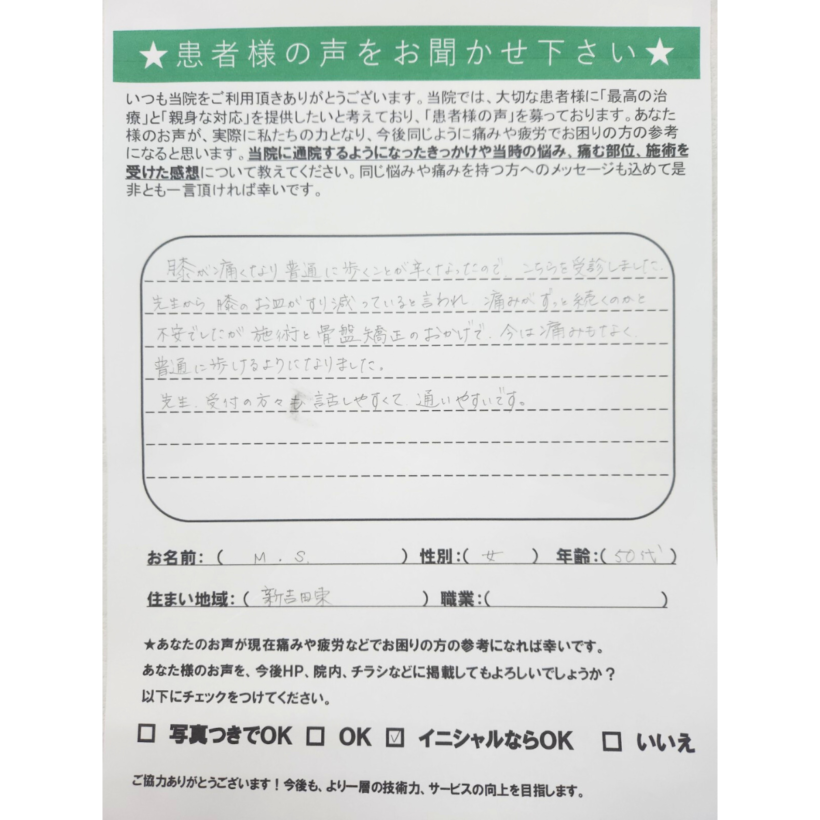 ★患者様の声をお聞かせ下さい★
いつも当院をご利用頂きありがとうございます。当院では、大切な患者様に「最高の治
療」と「親身な対応」を提供したいと考えており、「患者様の声」を募っております。あなた
様のお声が、実際に私たちの力となり、今後同じように痛みや疲労でお困りの方の参考
になると思います。当院に通院するようになったきっかけや当時の悩み、痛む部位、施術を
受けた感想について教えてください。同じ悩みや痛みを持つ方へのメッセージも込めて是
非とも一言頂ければ幸いです。
膝が痛くなり普通に歩くことが辛くなったので、こちらを受診しました。
先生から膝のお皿がすり減っていると言われ 痛みがずっと続くのかと
不安でしたが施術と骨盤矯正のおかげで、今は痛みもなく、
普通に歩けるようになりました。
先生、受付の方々も話しやすくて通いやすいです。
お名前：（ M.S. ）性別：（ 女 ） 年齢：（ 50代 ）
住まい地域：（ 新吉田東 ）職業：（ ）
★あなたのお声が現在痛みや疲労などでお困りの方の参考になれば幸いです。
あなた様のお声を、今後HP、院内、チラシなどに掲載してもよろしいでしょうか？
以下にチェックをつけてください。
☐ 写真つきでOK ☐ OK ☑ イニシャルならOK ☐ いいえ
ご協力ありがとうございます！今後も、より一層の技術力、サービスの向上を目指します。